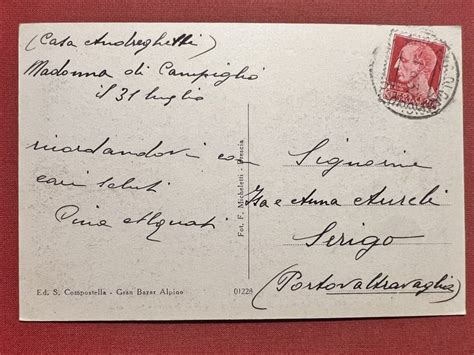 (Casa Andreghetti)
Madonna di Campiglio
il 31 luglio
ricordandovi con
cari saluti
Pina
Signorine
Isa e Anna Aureli
Serigo
(Portovaltravaglia)
Fot. F. Micheletti - Brescia
Ed. S. Compostella - Gran Bazar Alpino 01228